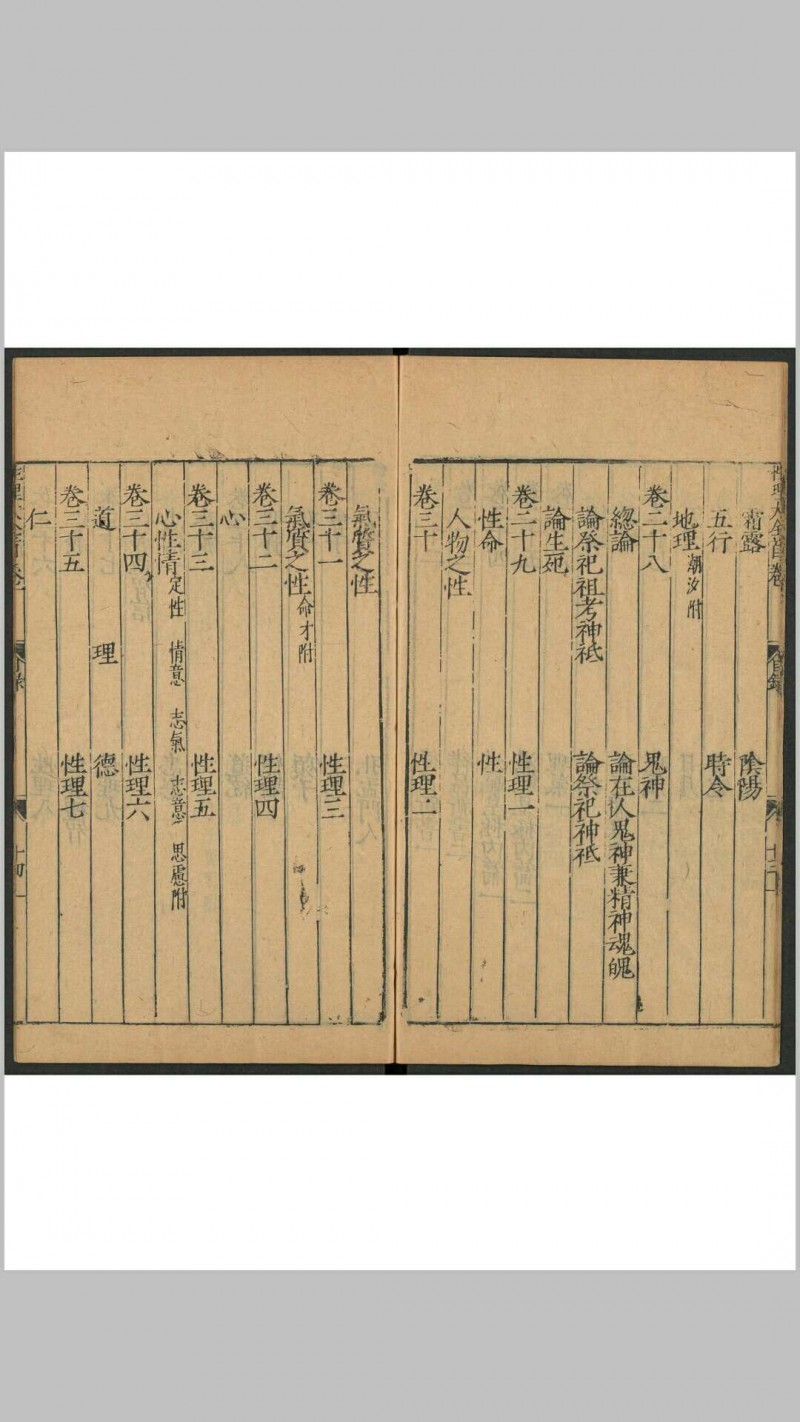 霜露 陰陽
五行 時令
地理潮汐附
卷二十八 鬼神
總論 論在人鬼神兼精神魂魄
論祭祀祖考神祇 論祭祀神祇
論生死
卷二十九 性理一
性命 性
人物之性
卷三十 性理二
氣質之性
卷三十一 性理三
氣質之性命才附
卷三十二 性理四
心
卷三十三 性理五
心性情定性 情意 志氣 志意 思慮附
卷三十四 性理六
道 理 德
卷三十五 性理七
仁